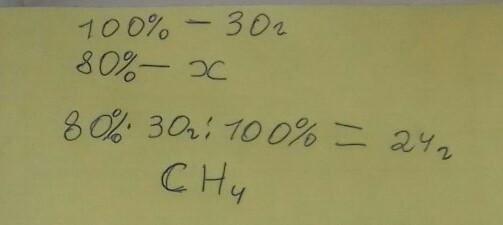 100% - 30г
80% - x
80%· 30г : 100% = 24г
CH4